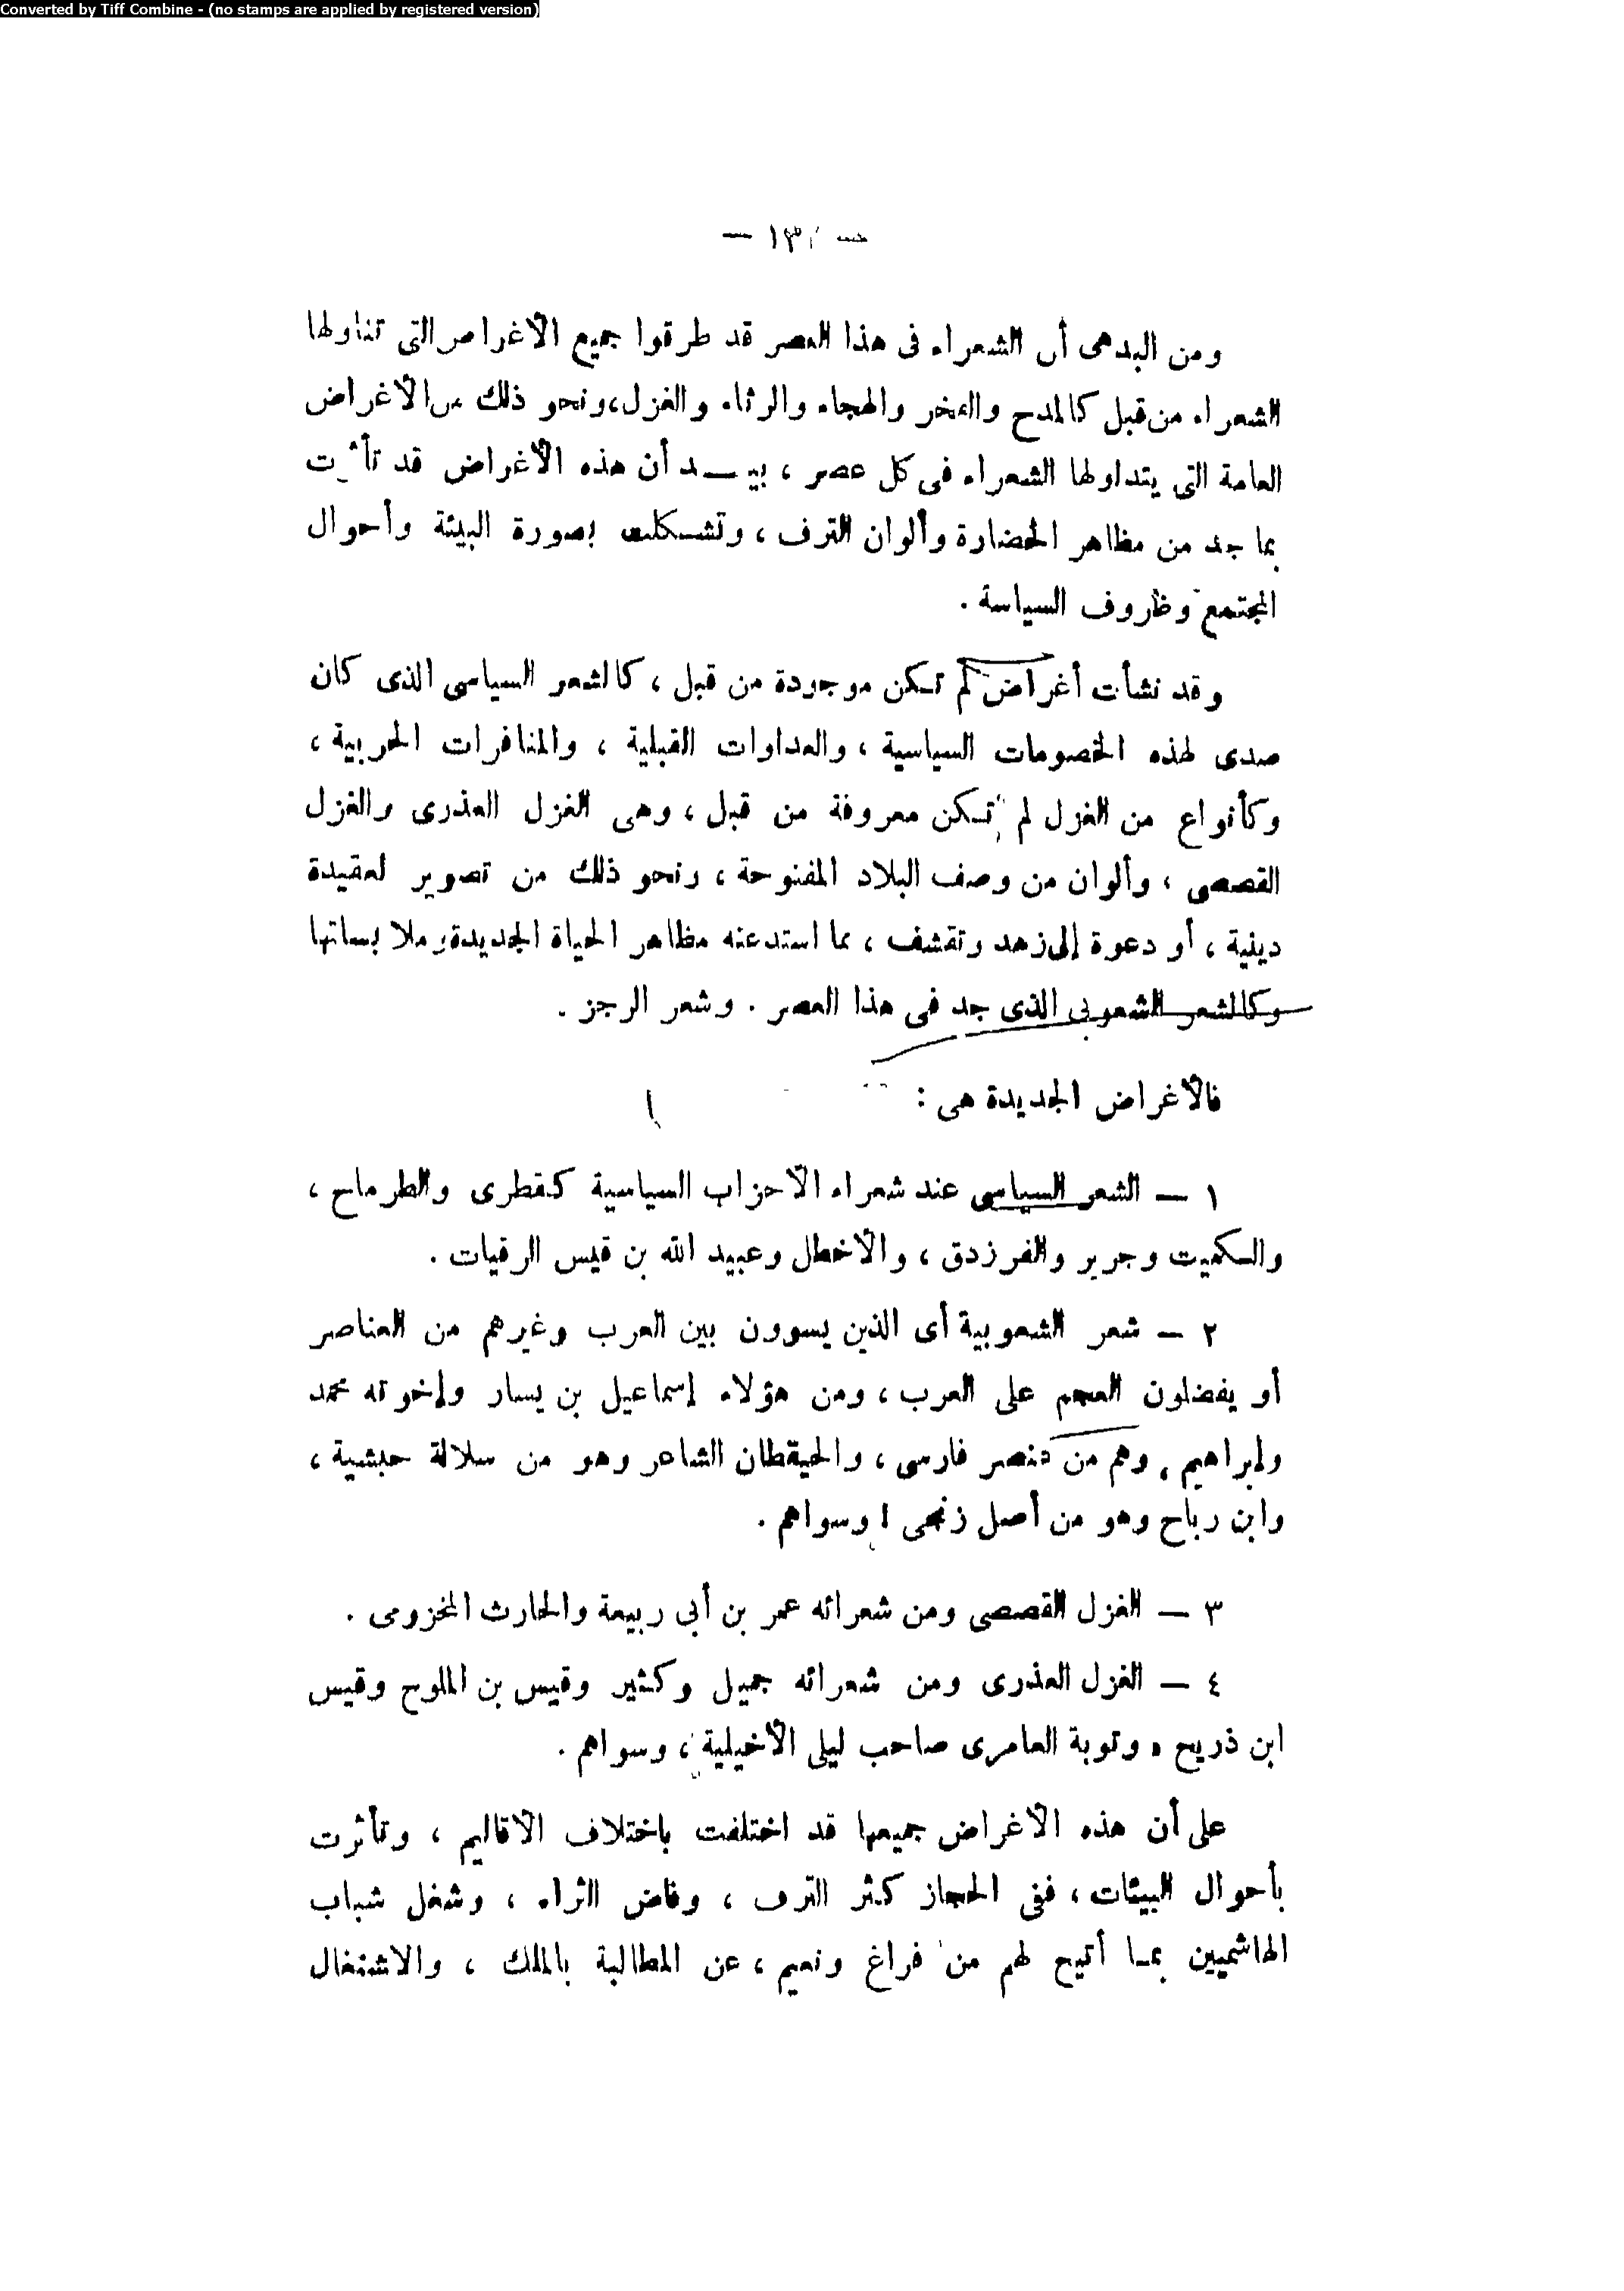 Converted by Tiff Combine - (no stamps are applied by registered version)
ومن البدهى أن الشعراء فى هذا العصر قد طرقوا جميع الأغراض التى تناولها
الشعراء من قبل كالمدح والفخر والهجاء والرثاء والغزل، ونحو ذلك من الأغراض
العامة التى يتداولها الشعراء فى كل عصر ، بيــد أن هذه الأغراض قد تأثرت
بما جد من مظاهر الحضارة وألوان الترف ، وتشكلت بصورة البيئة وأحوال
المجتمع وظروف السياسة .
وقد نشأت أغراض لم تكن موجودة من قبل ، كالشعر السياسى الذى كان
صدى لهذه الخصومات السياسية ، والعداوات القبلية ، والمنافرات الحربية ،
وكأنواع من الغزل لم تكن معروفة من قبل ، وهى الغزل العذرى والغزل
القصصى ، وألوان من وصف البلاد المفتوحة ، ونحو ذلك من تصوير لعقيدة
دينية ، أو دعوة إلى زهد وتقشف ، مما استدعته مظاهر الحياة الجديدة وملابساتها
وكالشعر الشعوبى الذى جد فى هذا العصر . وشعر الرجز .
فالأغراض الجديدة هى :
١ — الشعر السياسى عند شعراء الأحزاب السياسية كقطرى والطرماح ،
والكميت وجرير والفرزدق ، والأخطل وعبيد الله بن قيس الرقيات .
٢ — شعر الشعوبية أى الذين يسوون بين العرب وغيرهم من العناصر
أو يفضلون العجم على العرب ، ومن هؤلاء إسماعيل بن يسار وإخوته محمد
وإبراهيم ، وهم من عنصر فارسى ، والحيقطان الشاعر وهو من سلالة حبشية ،
وابن رباح وهو من أصل زنجى ، وسواهم .
٣ — الغزل القصصى ومن شعرائه عمر بن أبى ربيعة والحارث المخزومى .
٤ — الغزل العذرى ومن شعرائه جميل وكثير وقيس بن الملوح وقيس
ابن ذريح ، وتوبة العامرى صاحب ليلى الأخيلية ، وسواهم .
على أن هذه الأغراض جميعها قد اختلفت باختلاف الأقاليم ، وتأثرت
بأحوال البيئات ، ففى الحجاز كثر الترف ، وفاض الثراء ، وشغل شباب
الهاشميين بمـا أتيح لهم من فراغ ونعيم ، عن المطالبة بالملك ، والاشتغال